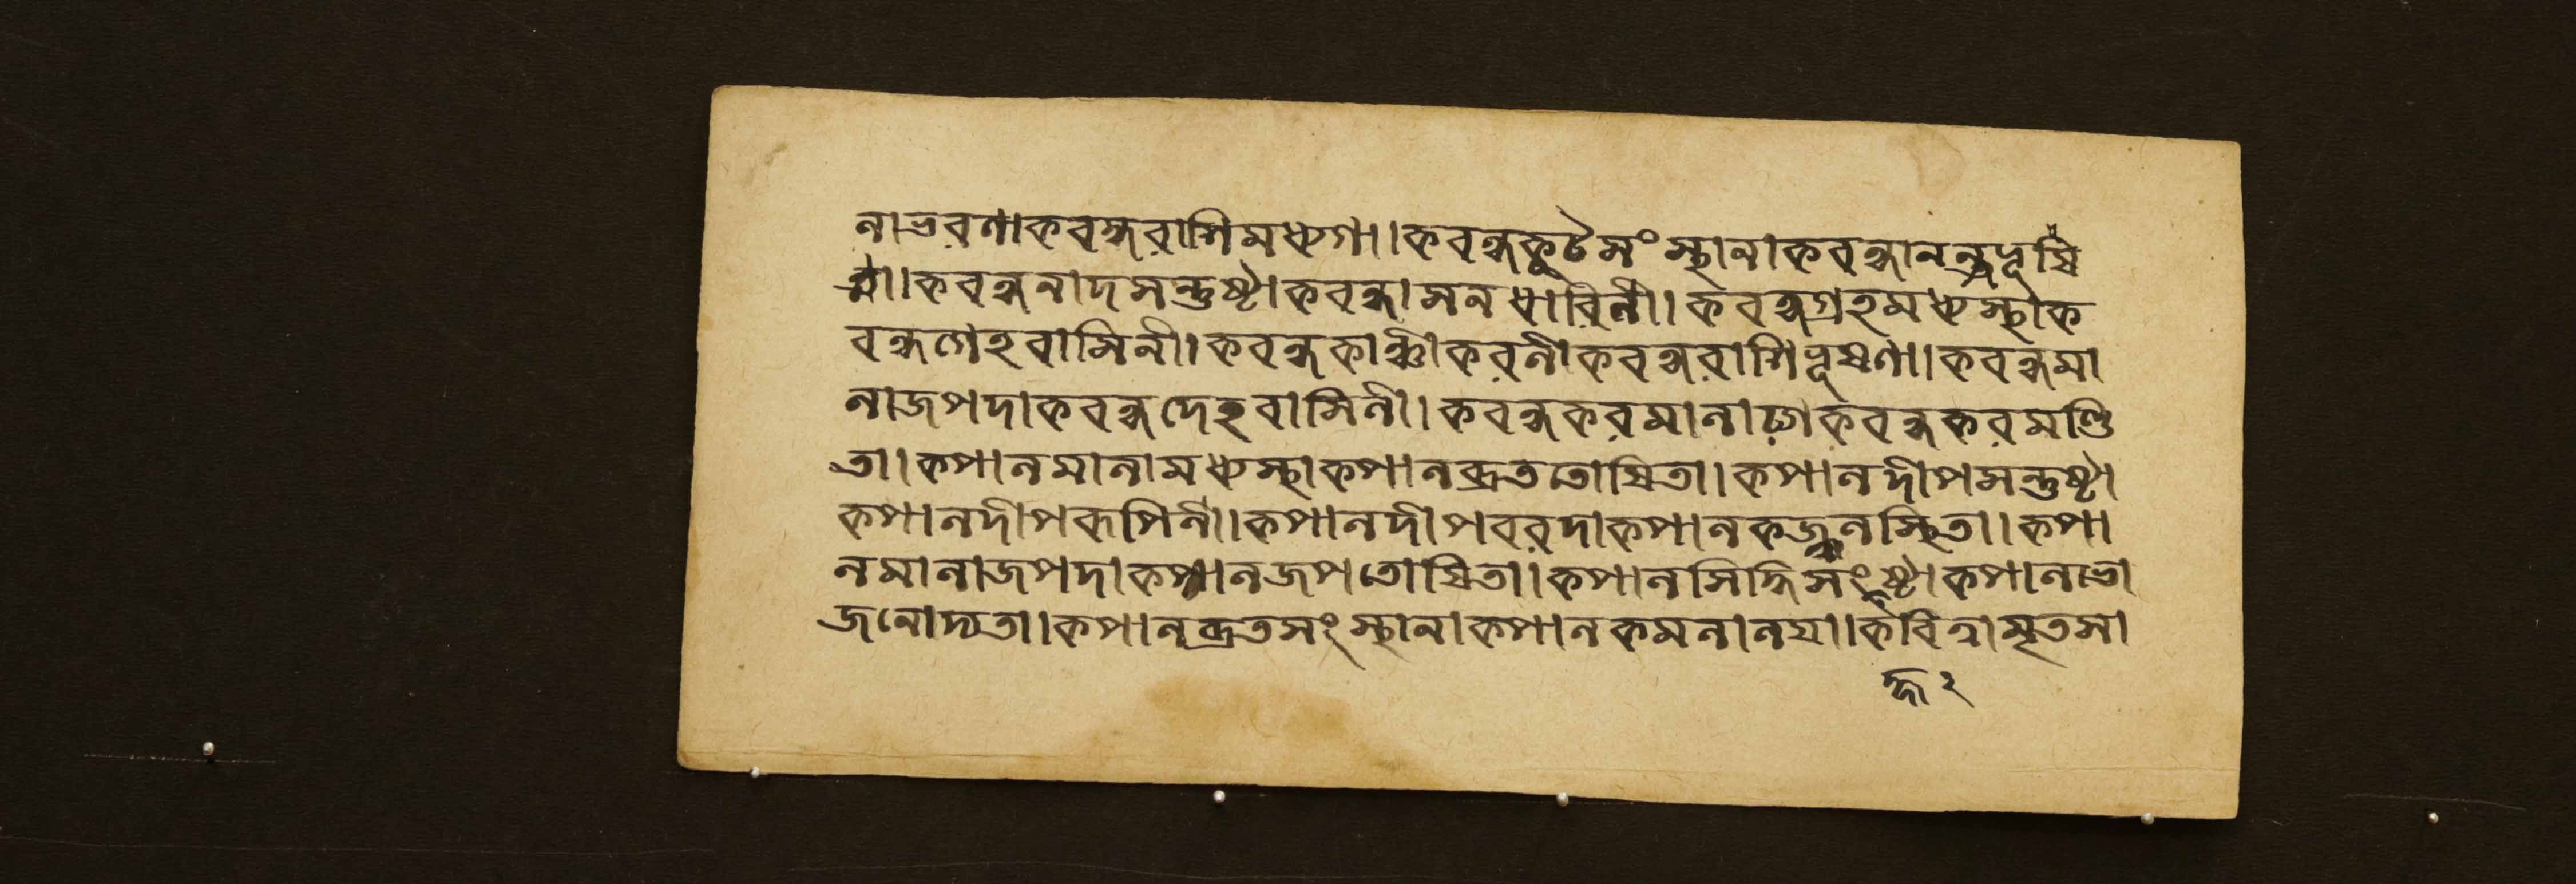 নাভরণাকবন্ধরাশিমধ্যগা।কবন্ধকূটসংস্থানাকবন্ধানন্ত্রভূষি
তা।কবন্ধনাদসন্তুষ্টাকবন্ধাসনধারিণী।কবন্ধগৃহমধ্যস্থাক
বন্ধগেহবাসিনী।কবন্ধকাঞ্চীকরণীকবন্ধরাশিভূষণা।কবন্ধমা
লাজপদাকবন্ধদেহবাসিনী।কবন্ধকরমালাঢ্যাকবন্ধকরমণ্ডি
তা।কপালমালামধ্যস্থাকপালব্রততোষিতা।কপালদীপসন্তুষ্টা
কপালদীপরূপিণী।কপালদীপবরদাকপালকজ্জলস্থিতা।কপা
লমালাজপদাকপালজপতোষিতা।কপালসিদ্ধিসংহৃষ্টাকপালভো
জনোদ্যতা।কপালব্রতসংস্থানাকপালকমলালয়া।কবিত্বামৃতসা